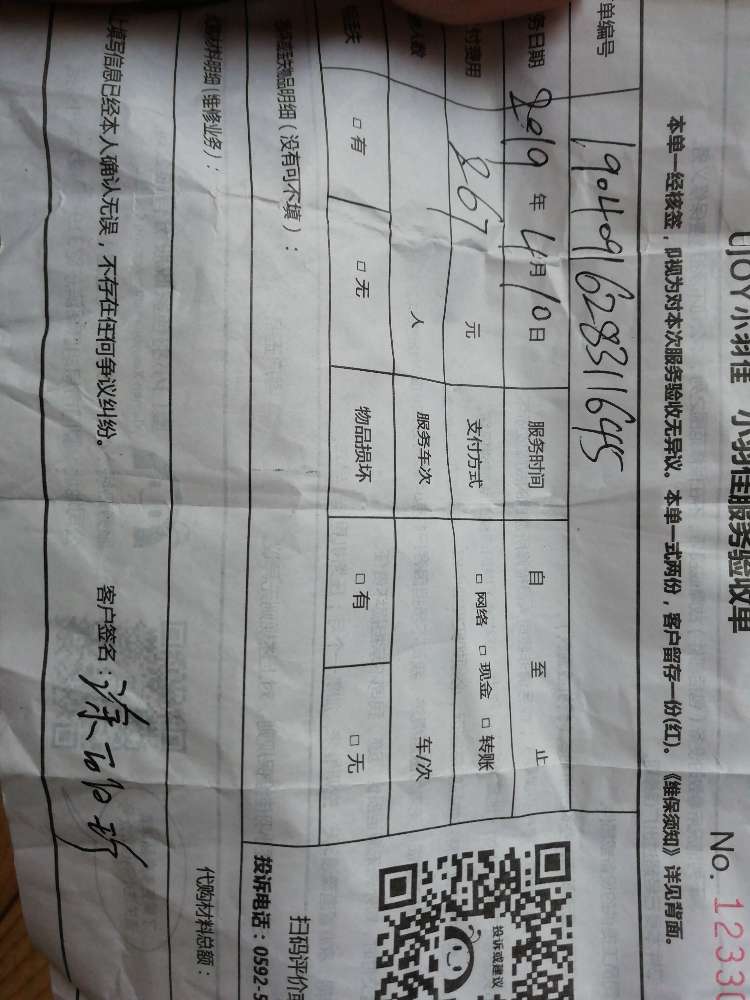 UJOY小羽佳 小羽佳服务验收单
No. 1233
本单一经核签，即视为对本次服务验收无异议。本单一式两份，客户留存一份(红)。《维保须知》详见背面。
单编号 1904091628311645
务日期 2019 年 4 月 10 日 服务时间 自 至 止
付费用 267 元 支付方式 □ 网络 □ 现金 □ 转账
人数 人 服务车次 车/次
□ 有 □ 无 物品损坏 □ 有 □ 无
物品明细（没有可不填）：
材料明细(维修业务)：
代购材料总额：
填写信息已经本人确认无误，不存在任何争议纠纷。 客户签名：
投诉或建议
扫码评价
投诉电话：0592-5